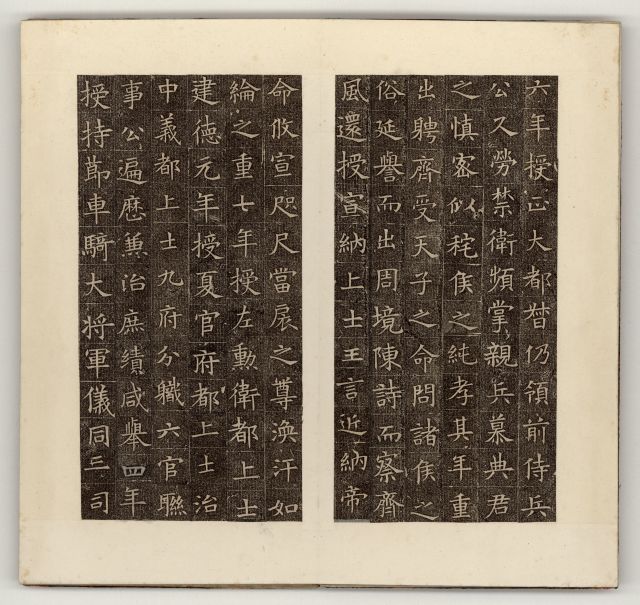 六年授正大都督仍領前侍兵
公又勞禁衛頻掌親兵慕典君
之慎密似秺侯之純孝其年重
出聘齊受天子之命問諸侯之
俗延譽而出周境陳詩而察齊
風還授宣納上士王言近納帝
命攸宣咫尺當扆之尊渙汗如
綸之重七年授左勳衛都上士
建德元年授夏官府都上士治
中義都上士九府分職六官聯
事公遍歷兼治庶績咸舉四年
授持節車騎大將軍儀同三司